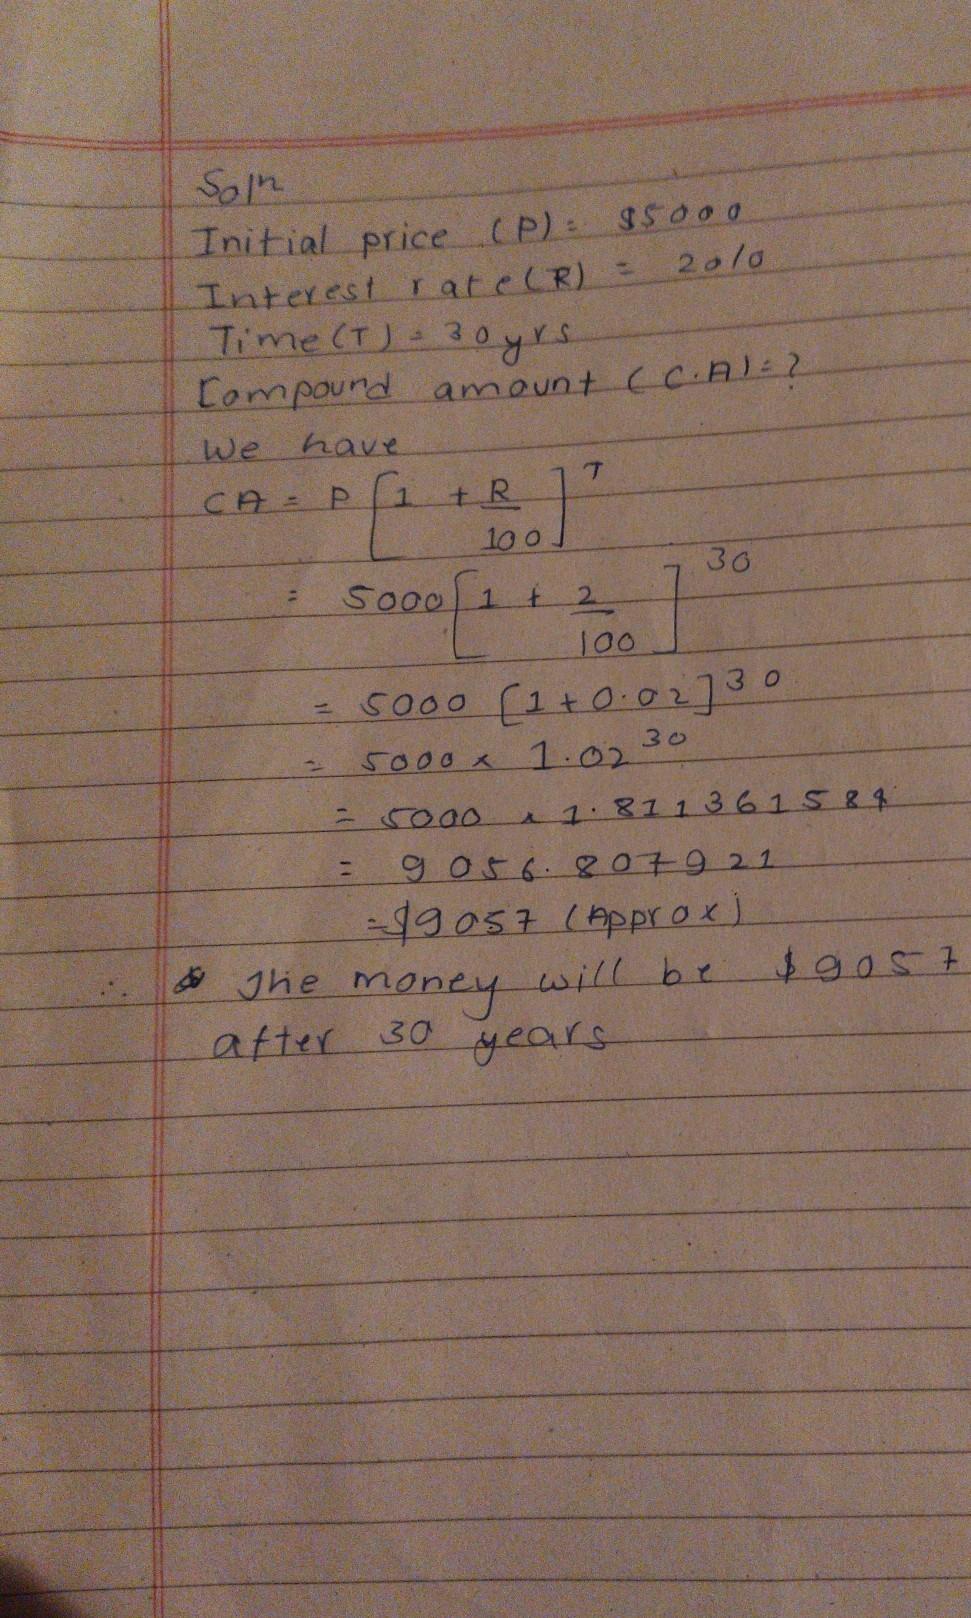 Soln
Initial price (P) = $5000
Interest rate (R) = 2%
Time (T) = 30 yrs
Compound amount (C.A) = ?
We have
CA = P [1 + R/100]^T
= 5000 [1 + 2/100]^30
= 5000 [1 + 0.02]^30
= 5000 x 1.02^30
= 5000 x 1.811361584
= 9056.807921
= $9057 (Approx)
∴ The money will be $9057
after 30 years